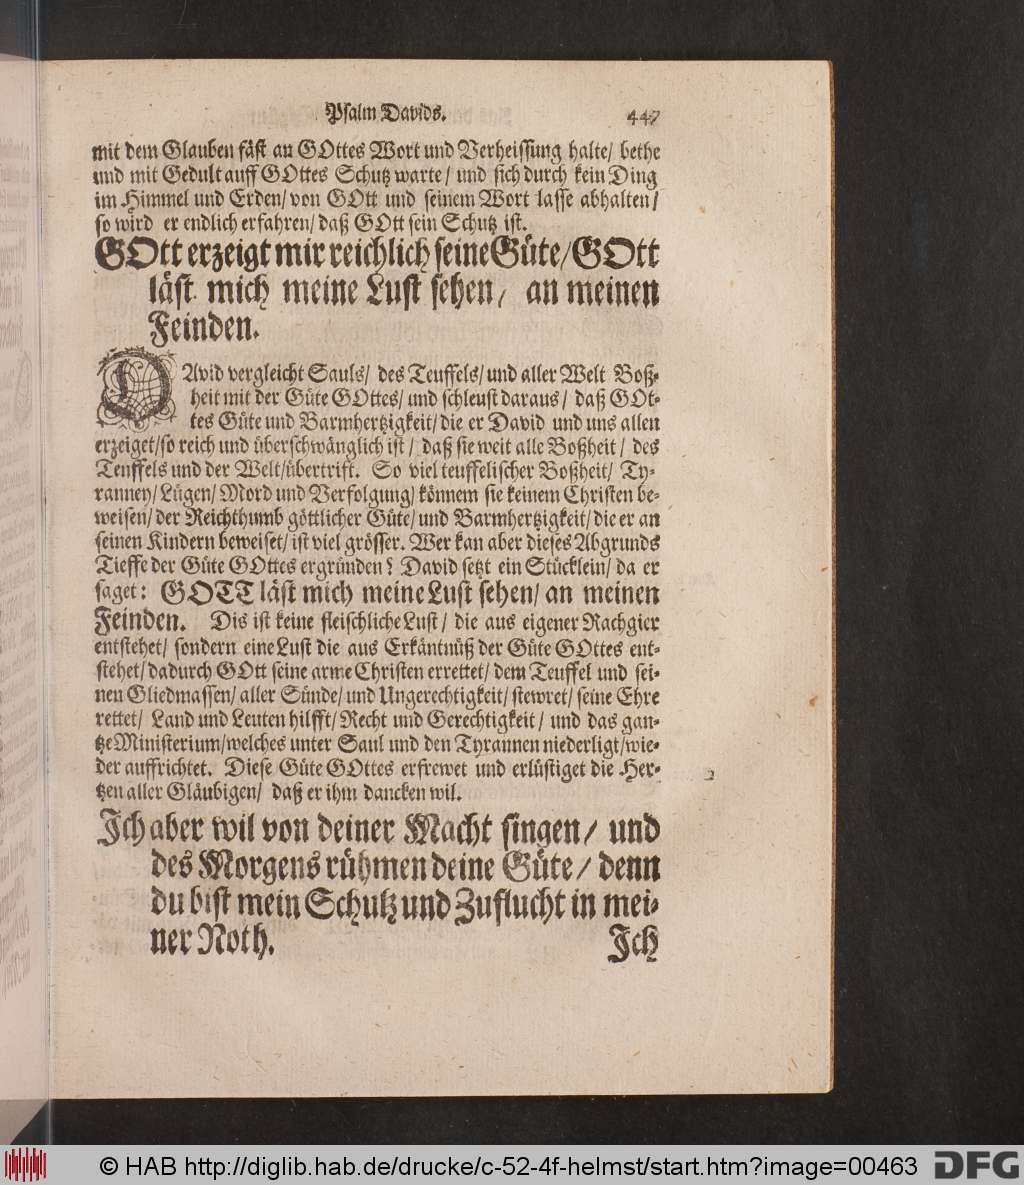 Psalm Davids. 447
mit dem Glauben fäst an GOttes Wort und Verheissung halte/ bethe
und mit Gedult auff GOttes Schutz warte/ und sich durch kein Ding
im Himmel und Erden/ von GOtt und seinem Wort lasse abhalten/
so wird er endlich erfahren/ daß GOtt sein Schutz ist.
GOtt erzeigt mir reichlich seine Güte/ GOtt
läst mich meine Lust sehen/ an meinen
Feinden.
DAvid vergleicht Sauls/ des Teuffels/ und aller Welt Boß-
heit mit der Güte GOttes/ und schleust daraus/ daß GOt-
tes Güte und Barmhertzigkeit/ die er David und uns allen
erzeiget/ so reich und überschwänglich ist/ daß sie weit alle Boßheit/ des
Teuffels und der Welt/ übertrift. So viel teuffelischer Boßheit/ Ty-
ranney/ Lügen/ Mord und Verfolgung/ könnem sie keinem Christen be-
weisen/ der Reichthumb göttlicher Güte/ und Barmhertzigkeit/ die er an
seinen Kindern beweiset/ ist viel grösser. Wer kan aber dieses Abgrunds
Tieffe der Güte GOttes ergründen? David setzt ein Stücklein/ da er
saget: GOTT läst mich meine Lust sehen/ an meinen
Feinden. Dis ist keine fleischliche Lust/ die aus eigener Rachgier
entstehet/ sondern eine Lust die aus Erkäntnüß der Güte GOttes ent-
stehet/ dadurch GOtt seine arme Christen errettet/ dem Teuffel und sei-
nen Gliedmassen/ aller Sünde/ und Ungerechtigkeit/ stewret/ seine Ehre
rettet/ Land und Leuten hilfft/ Recht und Gerechtigkeit/ und das gan-
tze Ministerium/ welches unter Saul und den Tyrannen niederligt/ wie-
der auffrichtet. Diese Güte GOttes erfrewet und erlüstiget die Her-
tzen aller Gläubigen/ daß er ihm dancken wil.
Ich aber wil von deiner Macht singen/ und
des Morgens rühmen deine Güte/ denn
du bist mein Schutz und Zuflucht in mei-
ner Noth. Ich
© HAB http://diglib.hab.de/drucke/c-52-4f-helmst/start.htm?image=00463 DFG